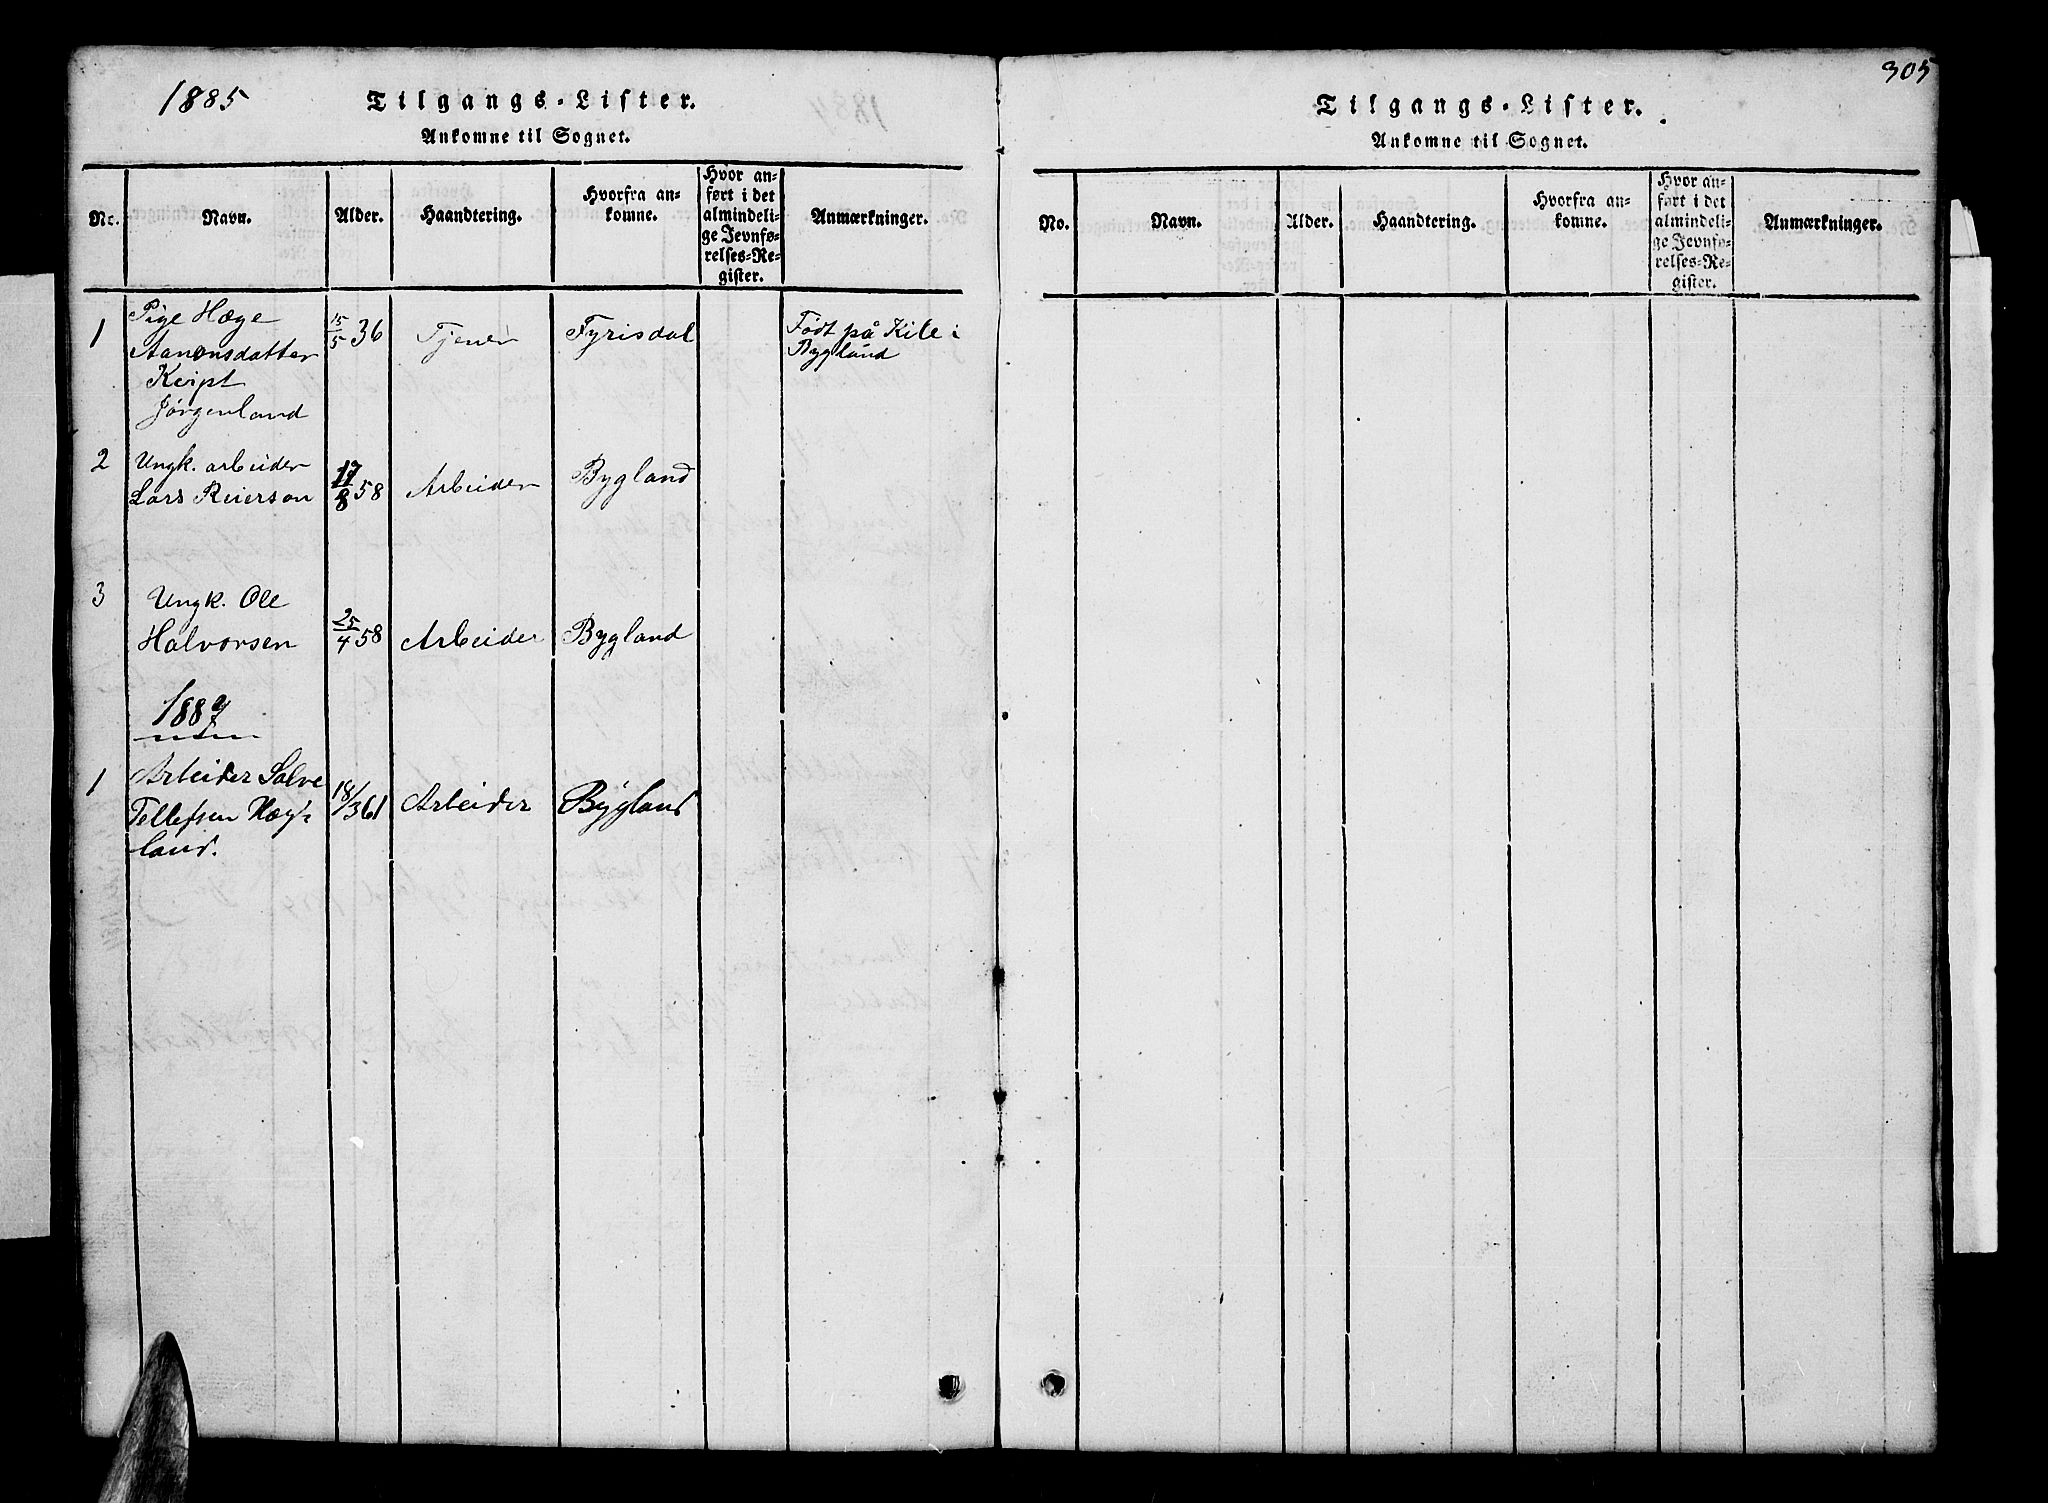 1885
Tilgangs-Lister.
Ankomne til Sognet.
No.
Navn.
Alder.
Haandtering.
Hvorfra an-
komne.
Hvor an-
ført i det
almindeli-
ge Jevnfø-
relses-Re-
gister.
Anmærkninger.
1
Pige Hæge
Aanonsdatter
Jørgenland
15/5 36
Tjener
Fyrisdal
Født på Kile i
Bygland
2
Ungk. arbeider
Lars Reierson
17/8 58
Arbeider
Bygland
3
Ungk. Ole
Halvorsen
25/4 58
Arbeider
Bygland
1887
1
Arbeider Salve
Tellefsen Hæg-
land.
18/3 61
Arbeider
Bygland
305
Tilgangs-Lister.
Ankomne til Sognet.
No.
Navn.
Alder.
Haandtering.
Hvorfra an-
komne.
Hvor an-
ført i det
almindeli-
ge Jevnfø-
relses-Re-
gister.
Anmærkninger.